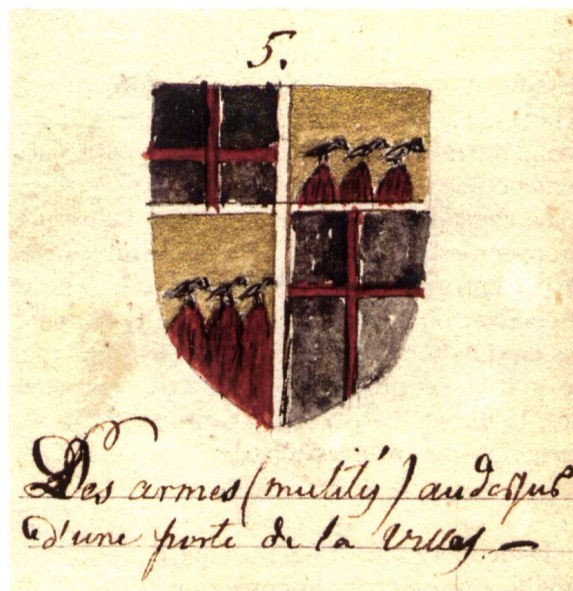 5.
Des armes (mutilés) au desſus
d'une porte de la Villes. —